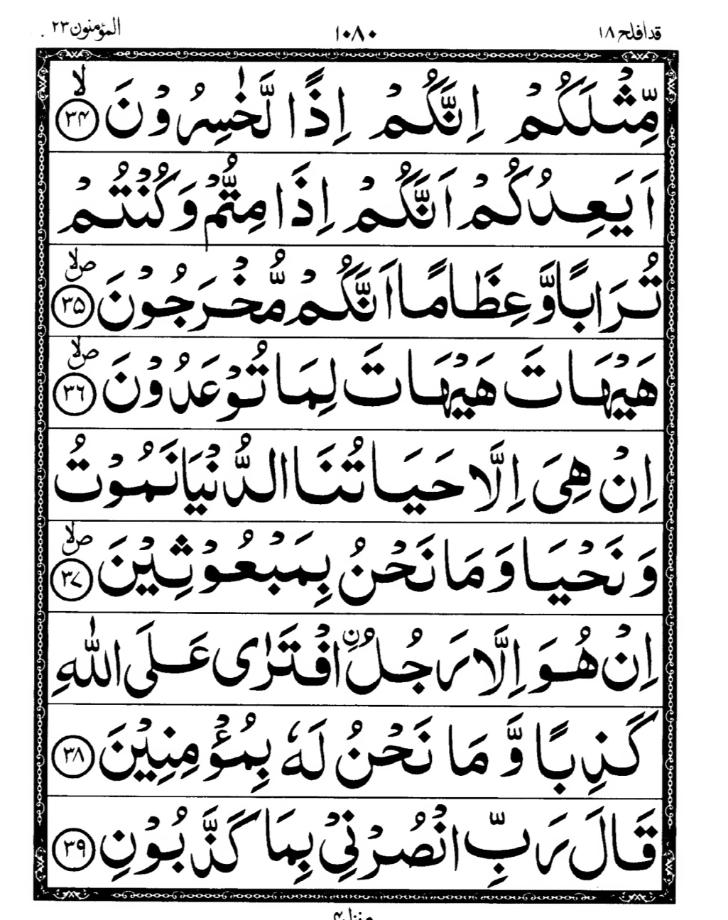 قدافلح ۱۸ ۱۰۸۰ المؤمنون ۲۳
مِّثْلَكُمْ اِنَّكُمْ اِذًا لَّخٰسِرُوْنَ ۙ‏﴿۳۴﴾
اَيَعِدُكُمْ اَنَّكُمْ اِذَا مِتُّمْ وَكُنْتُمْ
تُرَابًا وَّعِظَامًا اَنَّكُمْ مُّخْرَجُوْنَ ۙصلا ﴿۳۵﴾
هَيْهَاتَ هَيْهَاتَ لِمَا تُوْعَدُوْنَ صلا ﴿۳۶﴾
اِنْ هِىَ اِلَّا حَيَاتُنَا الدُّنْيَا نَمُوْتُ
وَنَحْيَا وَمَا نَحْنُ بِمَبْعُوْثِيْنَ صلا ﴿۳۷﴾
اِنْ هُوَ اِلَّا رَجُلُ اۨفْتَرٰى عَلَى اللّٰهِ
كَذِبًا وَّمَا نَحْنُ لَهٗ بِمُؤْمِنِيْنَ ﴿۳۸﴾
قَالَ رَبِّ انْصُرْنِىْ بِمَا كَذَّبُوْنِ ﴿۳۹﴾